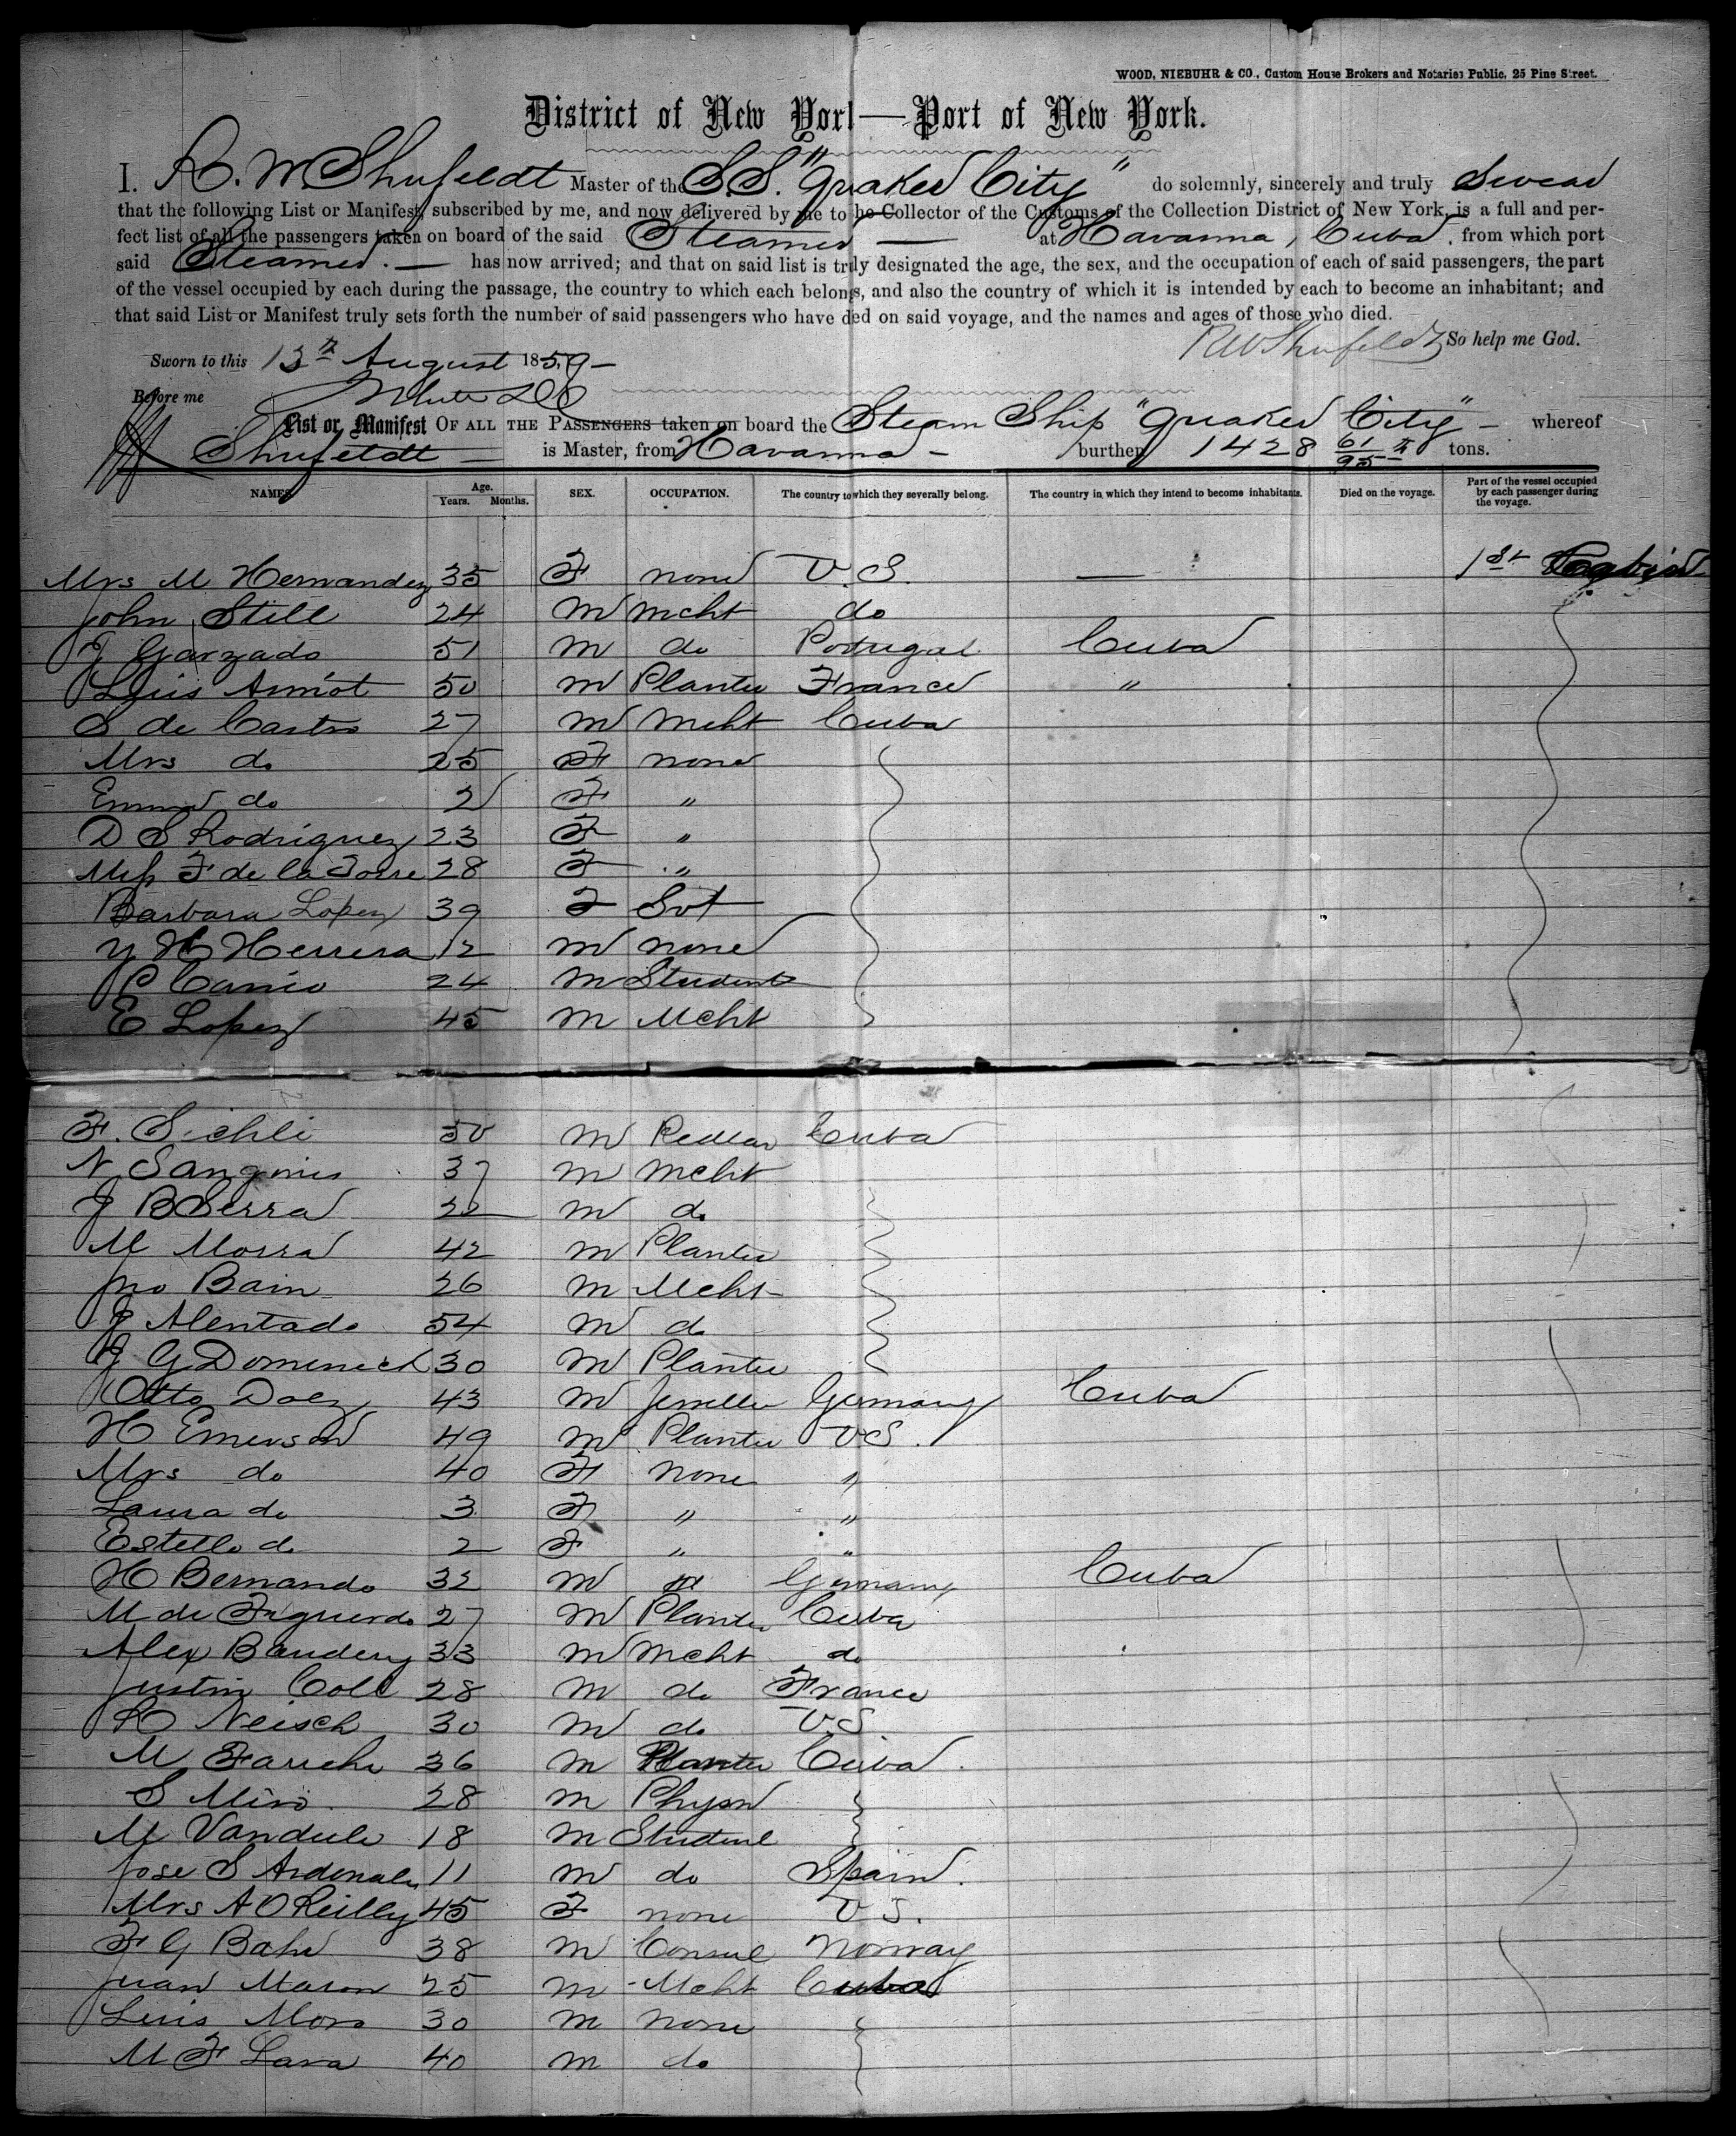 WOOD, NIEBUHR & CO., Custom House Brokers and Notaries Public, 25 Pine Street.
District of New York—Port of New York.
I. R. W. Shufeldt Master of the SS. "Quaker City" do solemnly, sincerely and truly Swear
that the following List or Manifest, subscribed by me, and now delivered by me to he Collector of the Customs of the Collection District of New York, is a full and per-
fect list of all the passengers taken on board of the said Steamer — at Havanna, Cuba, from which port
said Steamer. — has now arrived; and that on said list is truly designated the age, the sex, and the occupation of each of said passengers, the part
of the vessel occupied by each during the passage, the country to which each belongs, and also the country of which it is intended by each to become an inhabitant; and
that said List or Manifest truly sets forth the number of said passengers who have ded on said voyage, and the names and ages of those who died.
RW Shufeldt So help me God.
Sworn to this 13th August 1859—
Before me
List or Manifest OF ALL THE PASSENGERS taken on board the Steam Ship "Quaker City" — whereof
Shufeldt — is Master, from Havanna — burthen 1428 61/95 tons.
NAMES Age. Years. Months. SEX. OCCUPATION. The country to which they severally belong. The country in which they intend to become inhabitants. Died on the voyage. Part of the vessel occupied by each passenger during the voyage.
Mrs M Hernandez 35 F none U.S. — 1st Cabin
John Still 24 M Mcht do
J Garzado 51 M do Portugal Cuba
Luis Amiot 50 M Planter France "
S de Castro 27 M Mcht Cuba
Mrs do 25 F none
Emma do 2 F "
D S Rodriguez 23 F "
Miss F de la Torre 28 F "
Barbara Lopez 39 F Svt
Y H Herrera 12 M none
P Carrio 24 M Student
E Lopez 45 M Mcht
F. Sichli 50 M Cuba
N Sanginis 37 M Mcht
J B Serra 22 M do
M Morra 42 M Planter
Jno Bain 26 M Mcht
J Alentado 54 M do
J G Domenech 30 M Planter
Otto Dolz 43 M Jeweller Germany Cuba
H Emerson 49 M Planter US.
Mrs do 40 F none "
Laura do 3 F " "
Estelle do 2 F " "
H Bernando 32 M Germany Cuba
M de Figuerdo 27 M Planter Cuba
Alex Baudery 33 M Mcht do
Justin Coll 28 M do France
R Neisch 30 M do U.S
M 36 M Planter Cuba.
S Miro 28 M Physn
M 18 M Student
Jose S 11 M do Spain.
Mrs A O'Reilly 45 F none U S.
F G Bahr 38 M Consul Norway
Juan Mason 25 M Mcht Cuba
Luis Moro 30 M none
M F Lara 40 M do